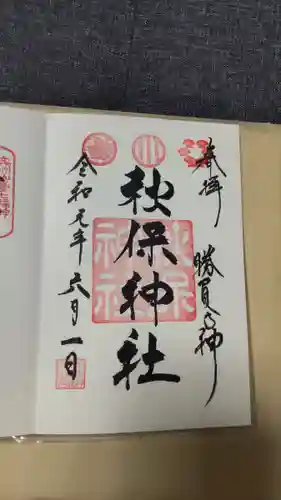 奉拝
勝負の神
秋保神社
令和元年六月一日